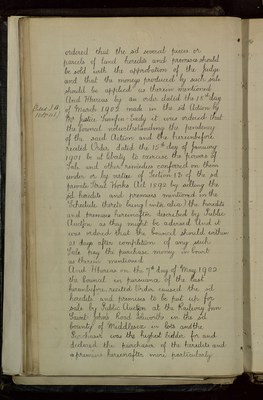 ordered that the sd several pieces or
parcels of land heredits and premises should
be sold with the approbation of the Judge
and that the moneys produced by such sale
should be applied as therein mentioned
And Whereas by an order dated the 18th day
of March 1902 made in the sd Action by
Mr Justice Swinfen Eady it was ordered that
the Council notwithstanding the pendency
of the said Action and the hereinbefore
recited Order dated the 15th day of January
1901 be at liberty to exercise the powers of
Sale and other remedies conferred on them
under or by virtue of Section 13 of the sd
private Street Works Act 1892 by selling the
sd heredits and premises mentioned in the
Schedule thereto being (inter alia) the heredits
and premises hereinafter described by Public
Auction as they might be advised And it
was ordered that the Council should within
21 days after completion of any such
Sale pay the purchase money in Court
as therein mentioned
And Whereas on the 7th day of May 1903
the Council in pursuance of the last
hereinbefore recited Order caused the sd
heredits and premises to be put up for
sale by Public Auction at the Railway Inn
Saint John's Road Isleworth in the sd
County of Middlesex in lots and the
Purchaser was the highest bidder for and
declared the purchaser of the heredits and
premises hereinafter more particularly